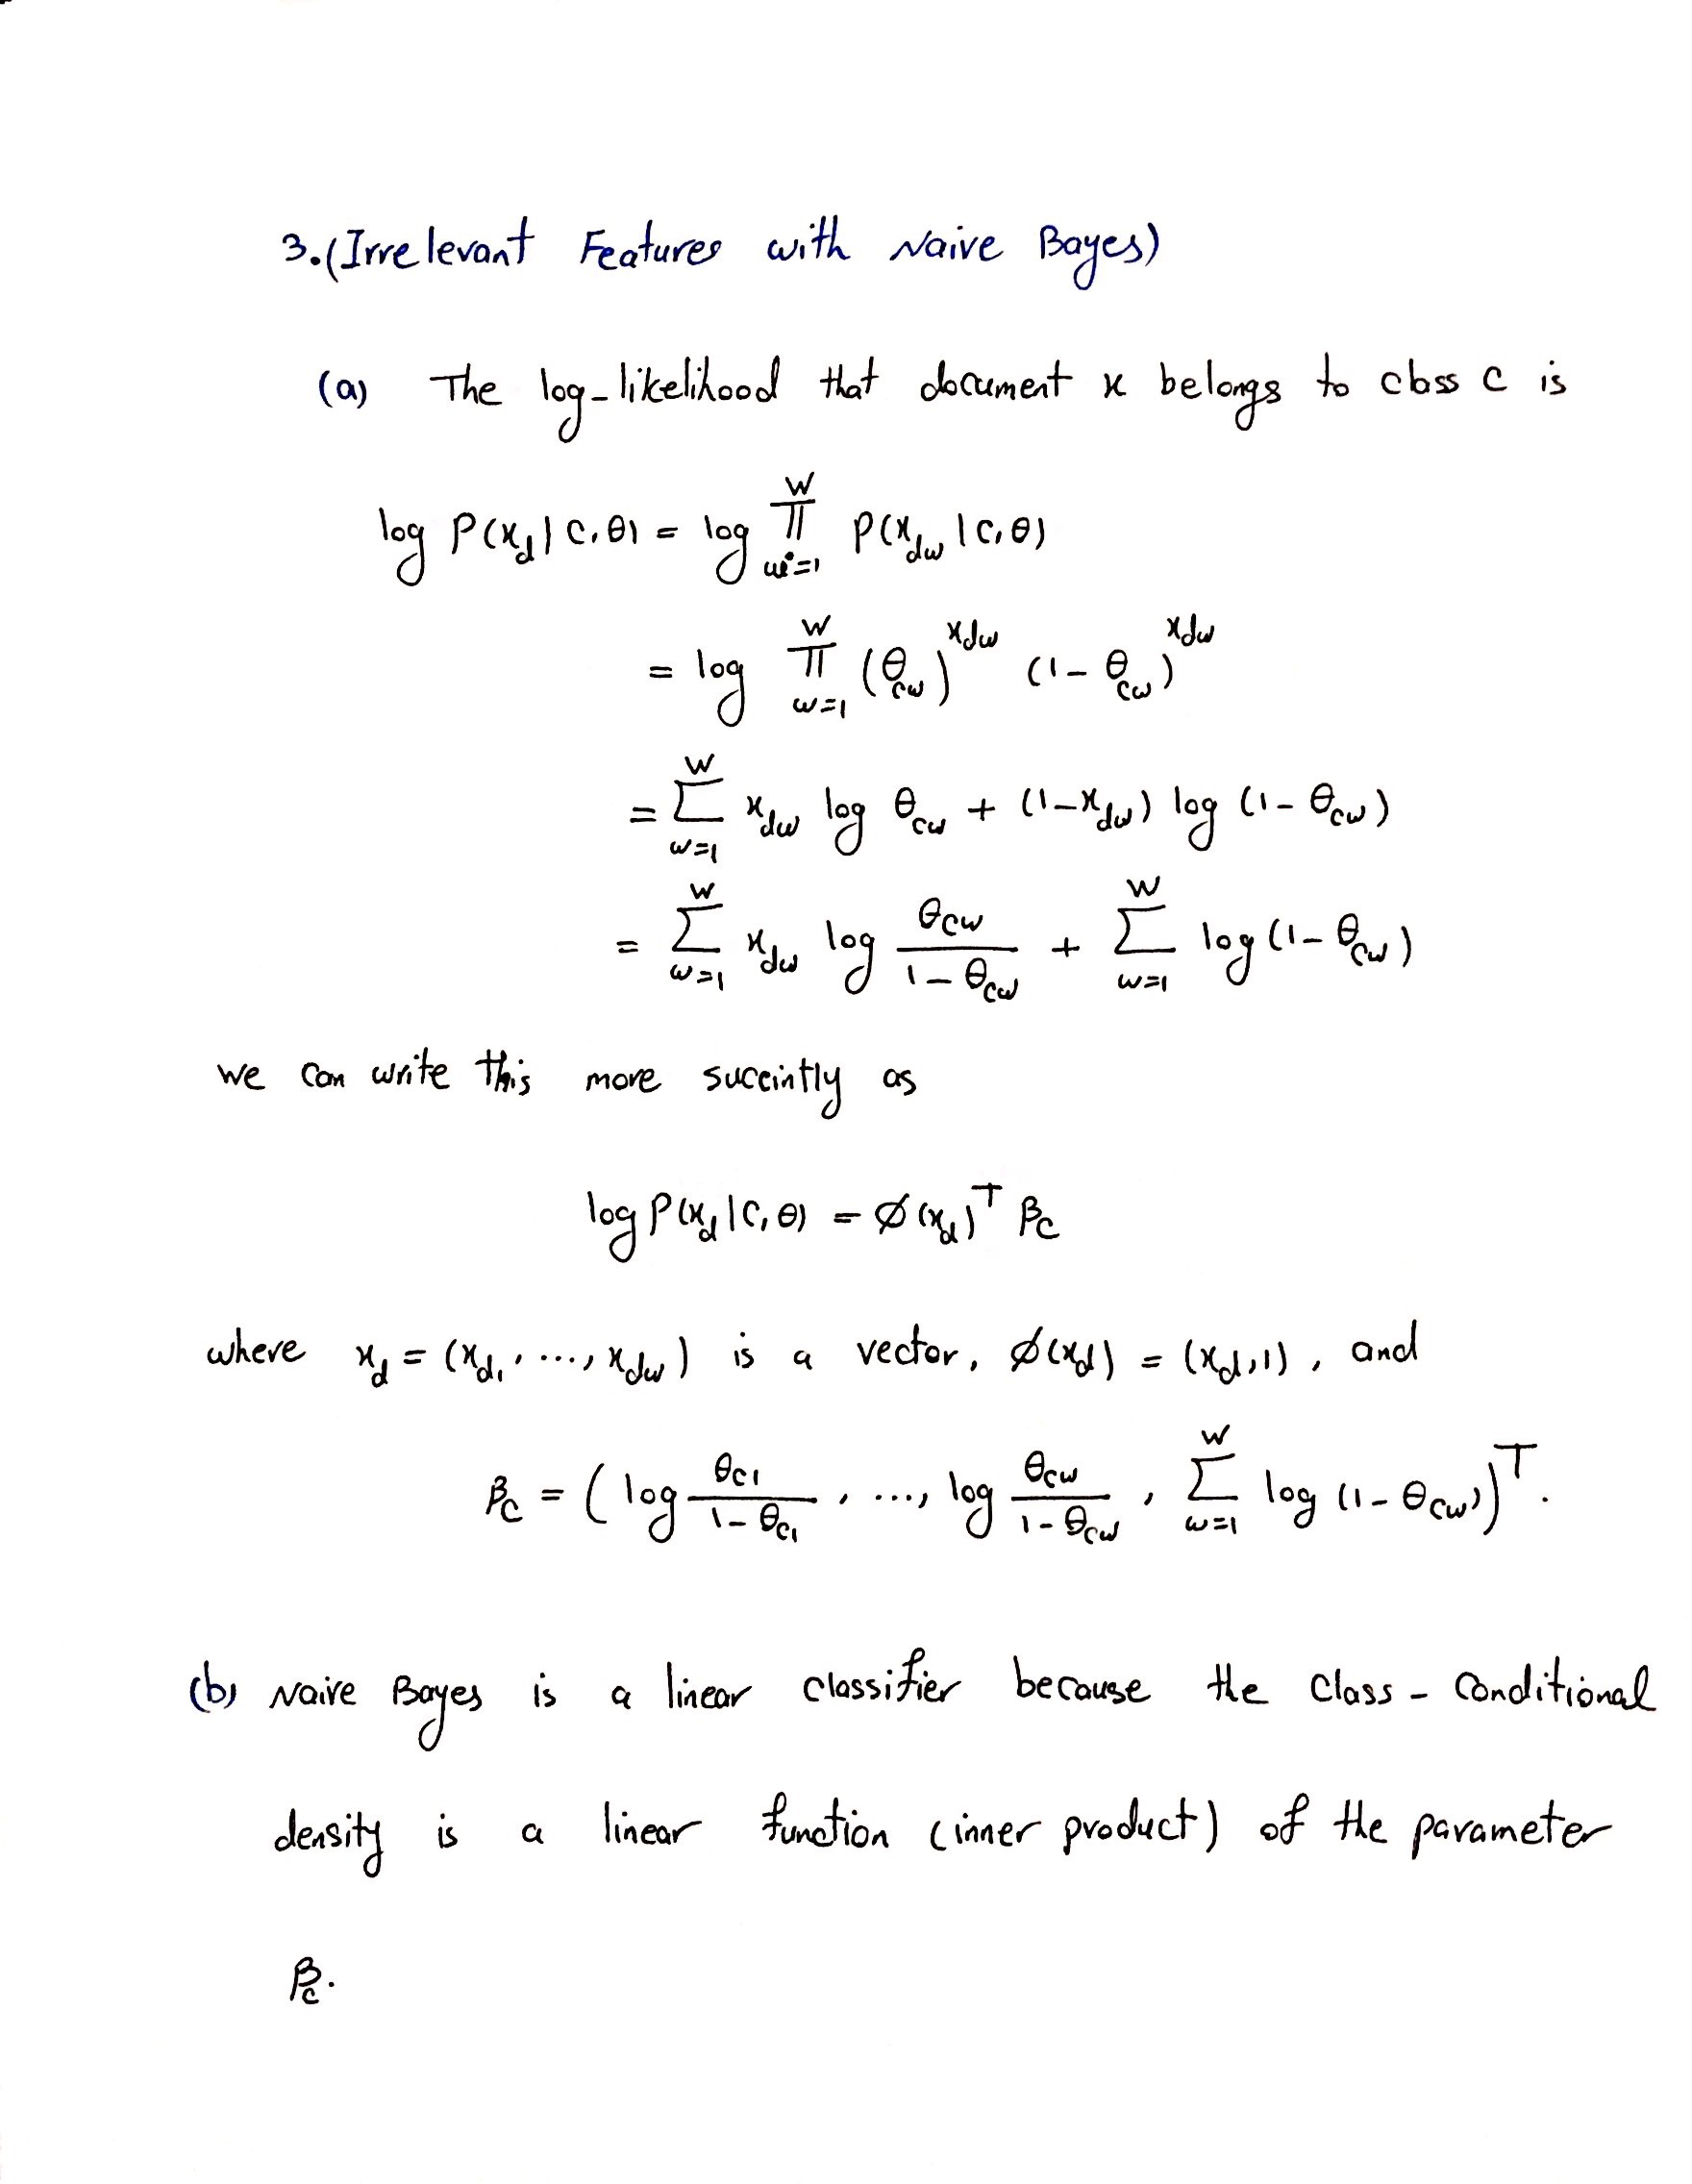 3. (Irrelevant Features with Naive Bayes)
(a) The log-likelihood that document x belongs to class C is
log P(x_d | C, θ) = log ∏_{w=1}^{W} P(x_{dw} | C, θ)
= log ∏_{w=1}^{W} (θ_{cw})^{x_{dw}} (1 - θ_{cw})^{x_{dw}}
= ∑_{w=1}^{W} x_{dw} log θ_{cw} + (1 - x_{dw}) log (1 - θ_{cw})
= ∑_{w=1}^{W} x_{dw} log \frac{θ_{cw}}{1 - θ_{cw}} + ∑_{w=1}^{W} log (1 - θ_{cw})
we can write this more succintly as
log P(x_d | C, θ) = ∅(x_d)^T β_c
where x_d = (x_{d1}, ..., x_{dw}) is a vector, ∅(x_d) = (x_d, 1), and
β_c = ( log \frac{θ_{c1}}{1 - θ_{c1}}, ..., log \frac{θ_{cw}}{1 - θ_{cw}}, ∑_{w=1}^{W} log (1 - θ_{cw}) )^T.
(b) Naive Bayes is a linear classifier because the class - conditional
density is a linear function (inner product) of the parameter
β_c.